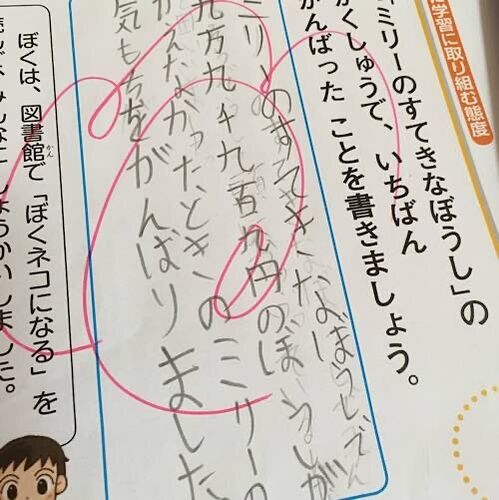 学習に取り組む態度
ミリーのすてきなぼうし」の
がくしゅうで、いちばん
がんばった ことを書きましょう。
ミリーのすてきなぼうしで
九万九千九百九円のぼうしが
かえなかったとき、のミリーの
気もちをがんばりました
ぼくは、図書館で「ぼくネコになる」を
かん
読んで、みんなにしょうかいしました。